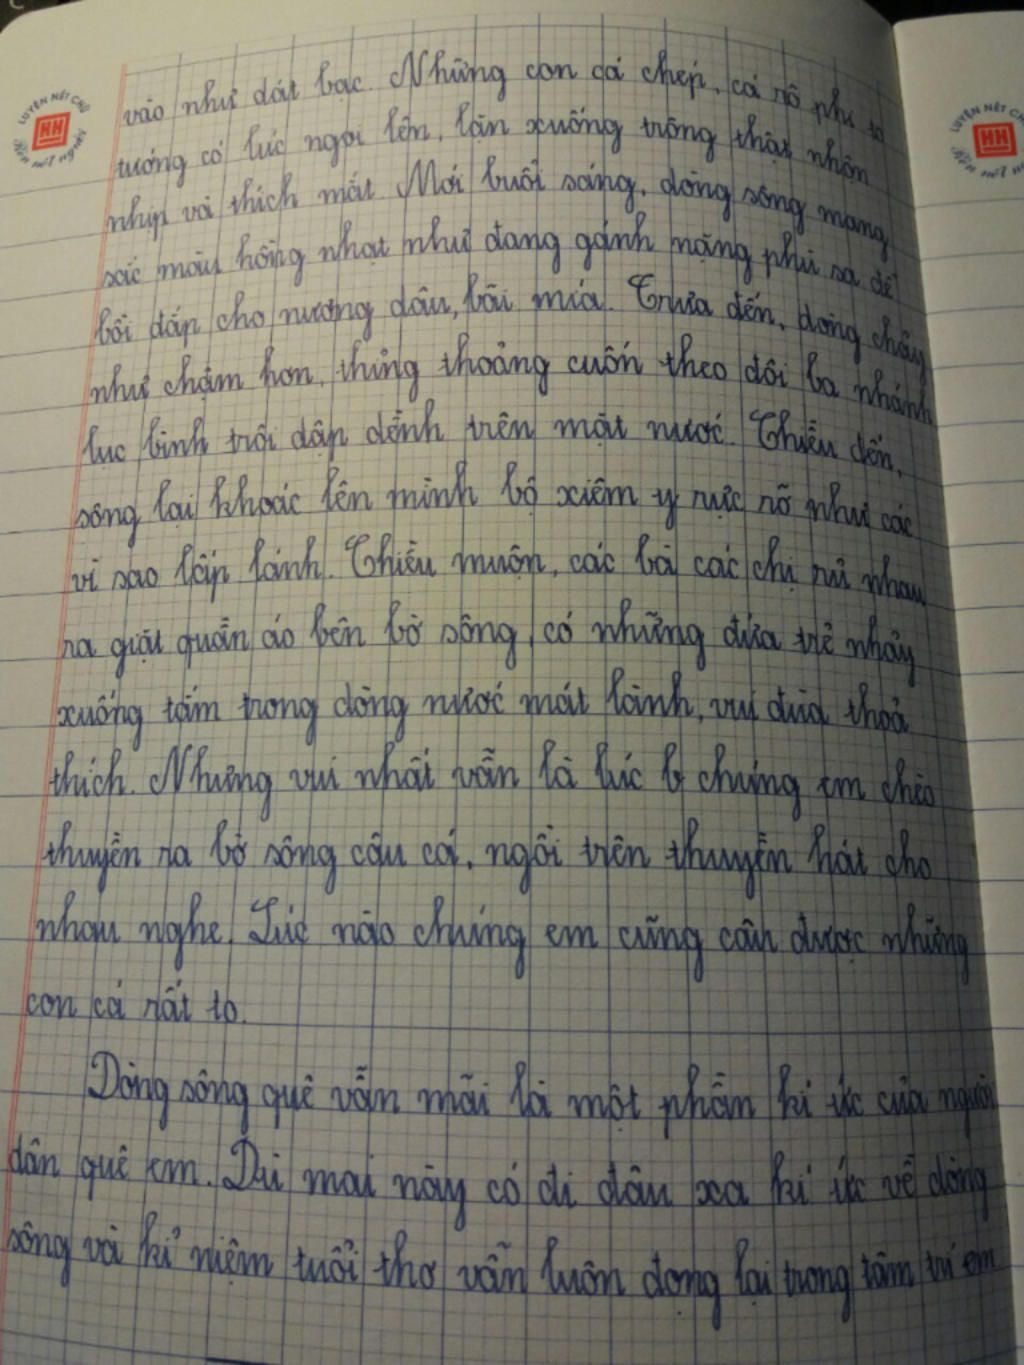 vào như dát bạc. Những con cá chép, cá rô phi to
tướng có lúc ngoi lên, lặn xuống trông thật nhộn
nhịp và thích mắt. Mỗi buổi sáng, dòng sông mang
sắc màu hồng nhạt như đang gánh nặng phù sa để
bồi đắp cho nương dâu, bãi mía. Trưa đến, dòng chảy
như chậm hơn, thỉnh thoảng cuốn theo đôi ba nhánh
lục bình trôi dập dềnh trên mặt nước. Chiều đến,
sông lại khoác lên mình bộ xiêm y rực rỡ như các
vì sao lấp lánh. Chiều muộn, các bà các chị rủ nhau
ra giặt quần áo bên bờ sông, có những đứa trẻ nhảy
xuống tắm trong dòng nước mát lành, vui đùa thoả
thích. Nhưng vui nhất vẫn là lúc b chúng em chèo
thuyền ra bờ sông câu cá, ngồi trên thuyền hát cho
nhau nghe. Lúc nào chúng em cũng câu được những
con cá rất to.
Dòng sông quê vẫn mãi là một phần kí ức của người
dân quê em. Dù mai này có đi đâu xa kí ức về dòng
sông và kỉ niệm tuổi thơ vẫn luôn đọng lại trong tâm trí em
LUYỆN NÉT CHỮ
HH
Rèn nết người
LUYỆN NÉT CH
HH
Rèn nết n